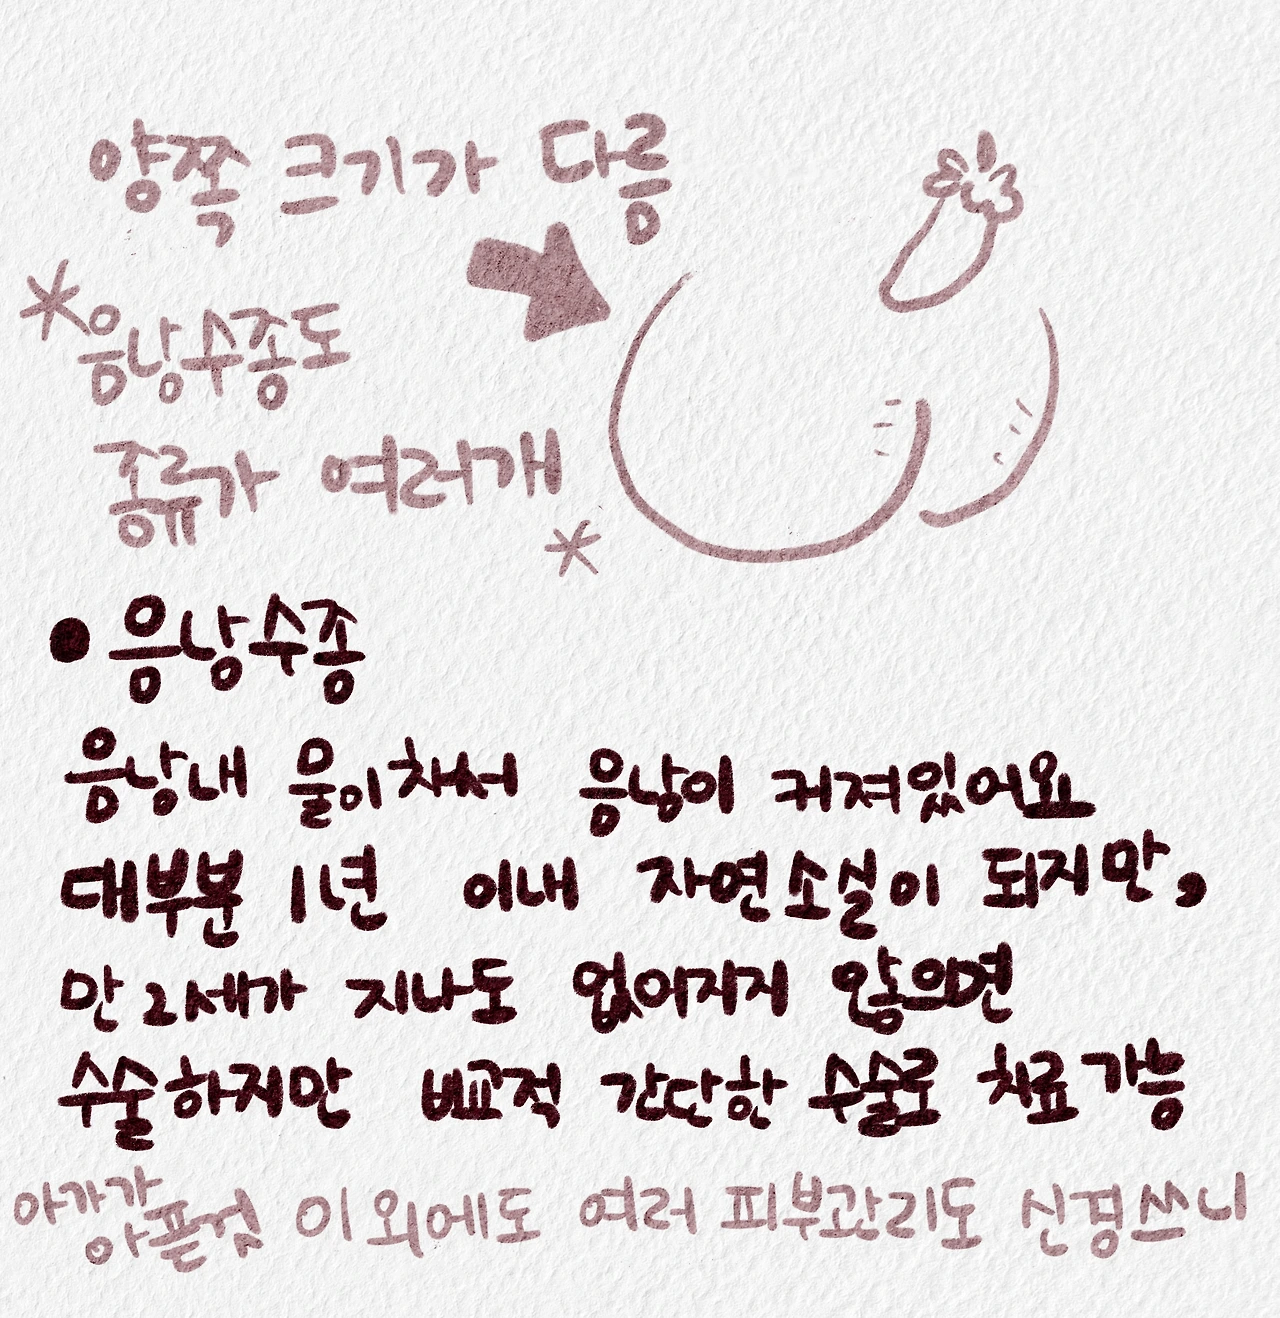 양쪽 크기가 다름
*음낭수종도
종류가 여러개*
● 음낭수종
음낭내 물이차서 음낭이 커져있어요
대부분 1년 이내 자연소실이 되지만,
만2세가 지나도 없어지지 않으면
수술하지만 비교적 간단한 수술로 치료가능
아가가 아픈것 이외에도 여러 피부관리도 신경쓰니